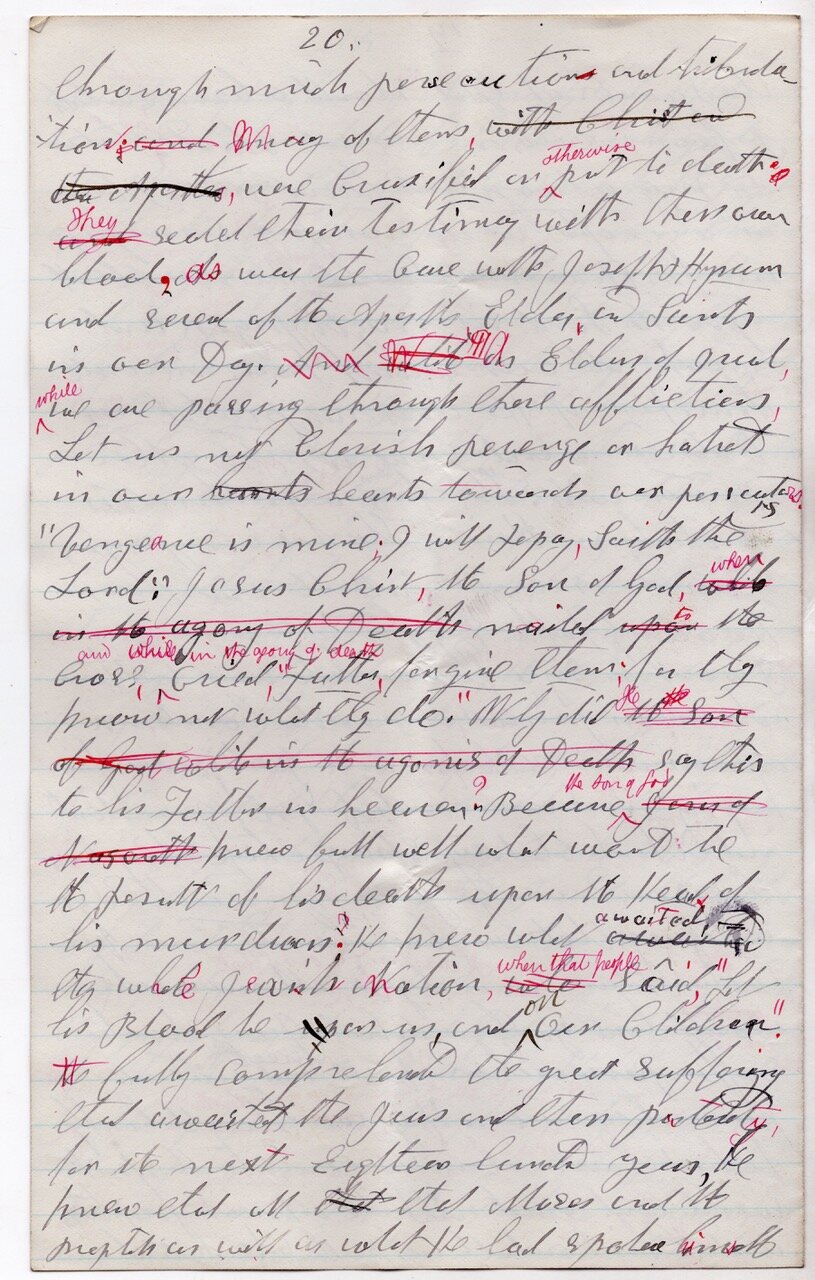 20.
through much persecutions and tribula-
tion; and Many of them, with Christ and
the Apostles, were Crucified or otherwise put to death.
and They sealed their testimony with their own
blood, as was the Case with Joseph & Hyrum
and several of the Apostles Elders, and Saints
in our Day. And While as Elders of Israel,
while we are passing through these afflictions,
Let us not Cherish revenge or hatred
in our hearts hearts towards our persecutors.
"Vengeance is mine; I will repay, Saith the
Lord." Jesus Christ, the Son of God, while when
in the agony of Death nailed upon to the
and while in the agony of death
Cross, Cried, "Father, forgive them; for they
know not what they do." Why did the Son He
of God while in the agonies of Death say this
to his Father in heaven? Because the son of God Jesus of
Nazareth knew full well what would be
the result of his death upon the Heads of
his murderers. He knew what awaited
the whole Jewish Nation, when that people said, "Let
his Blood be upon us, and on Our Children."
He fully comprehended the great suffering
that awaited the Jews and their posterity,
for the next Eighteen hundred years, He
knew that all that that Moses and the
prophets as well as what He had spoken himself